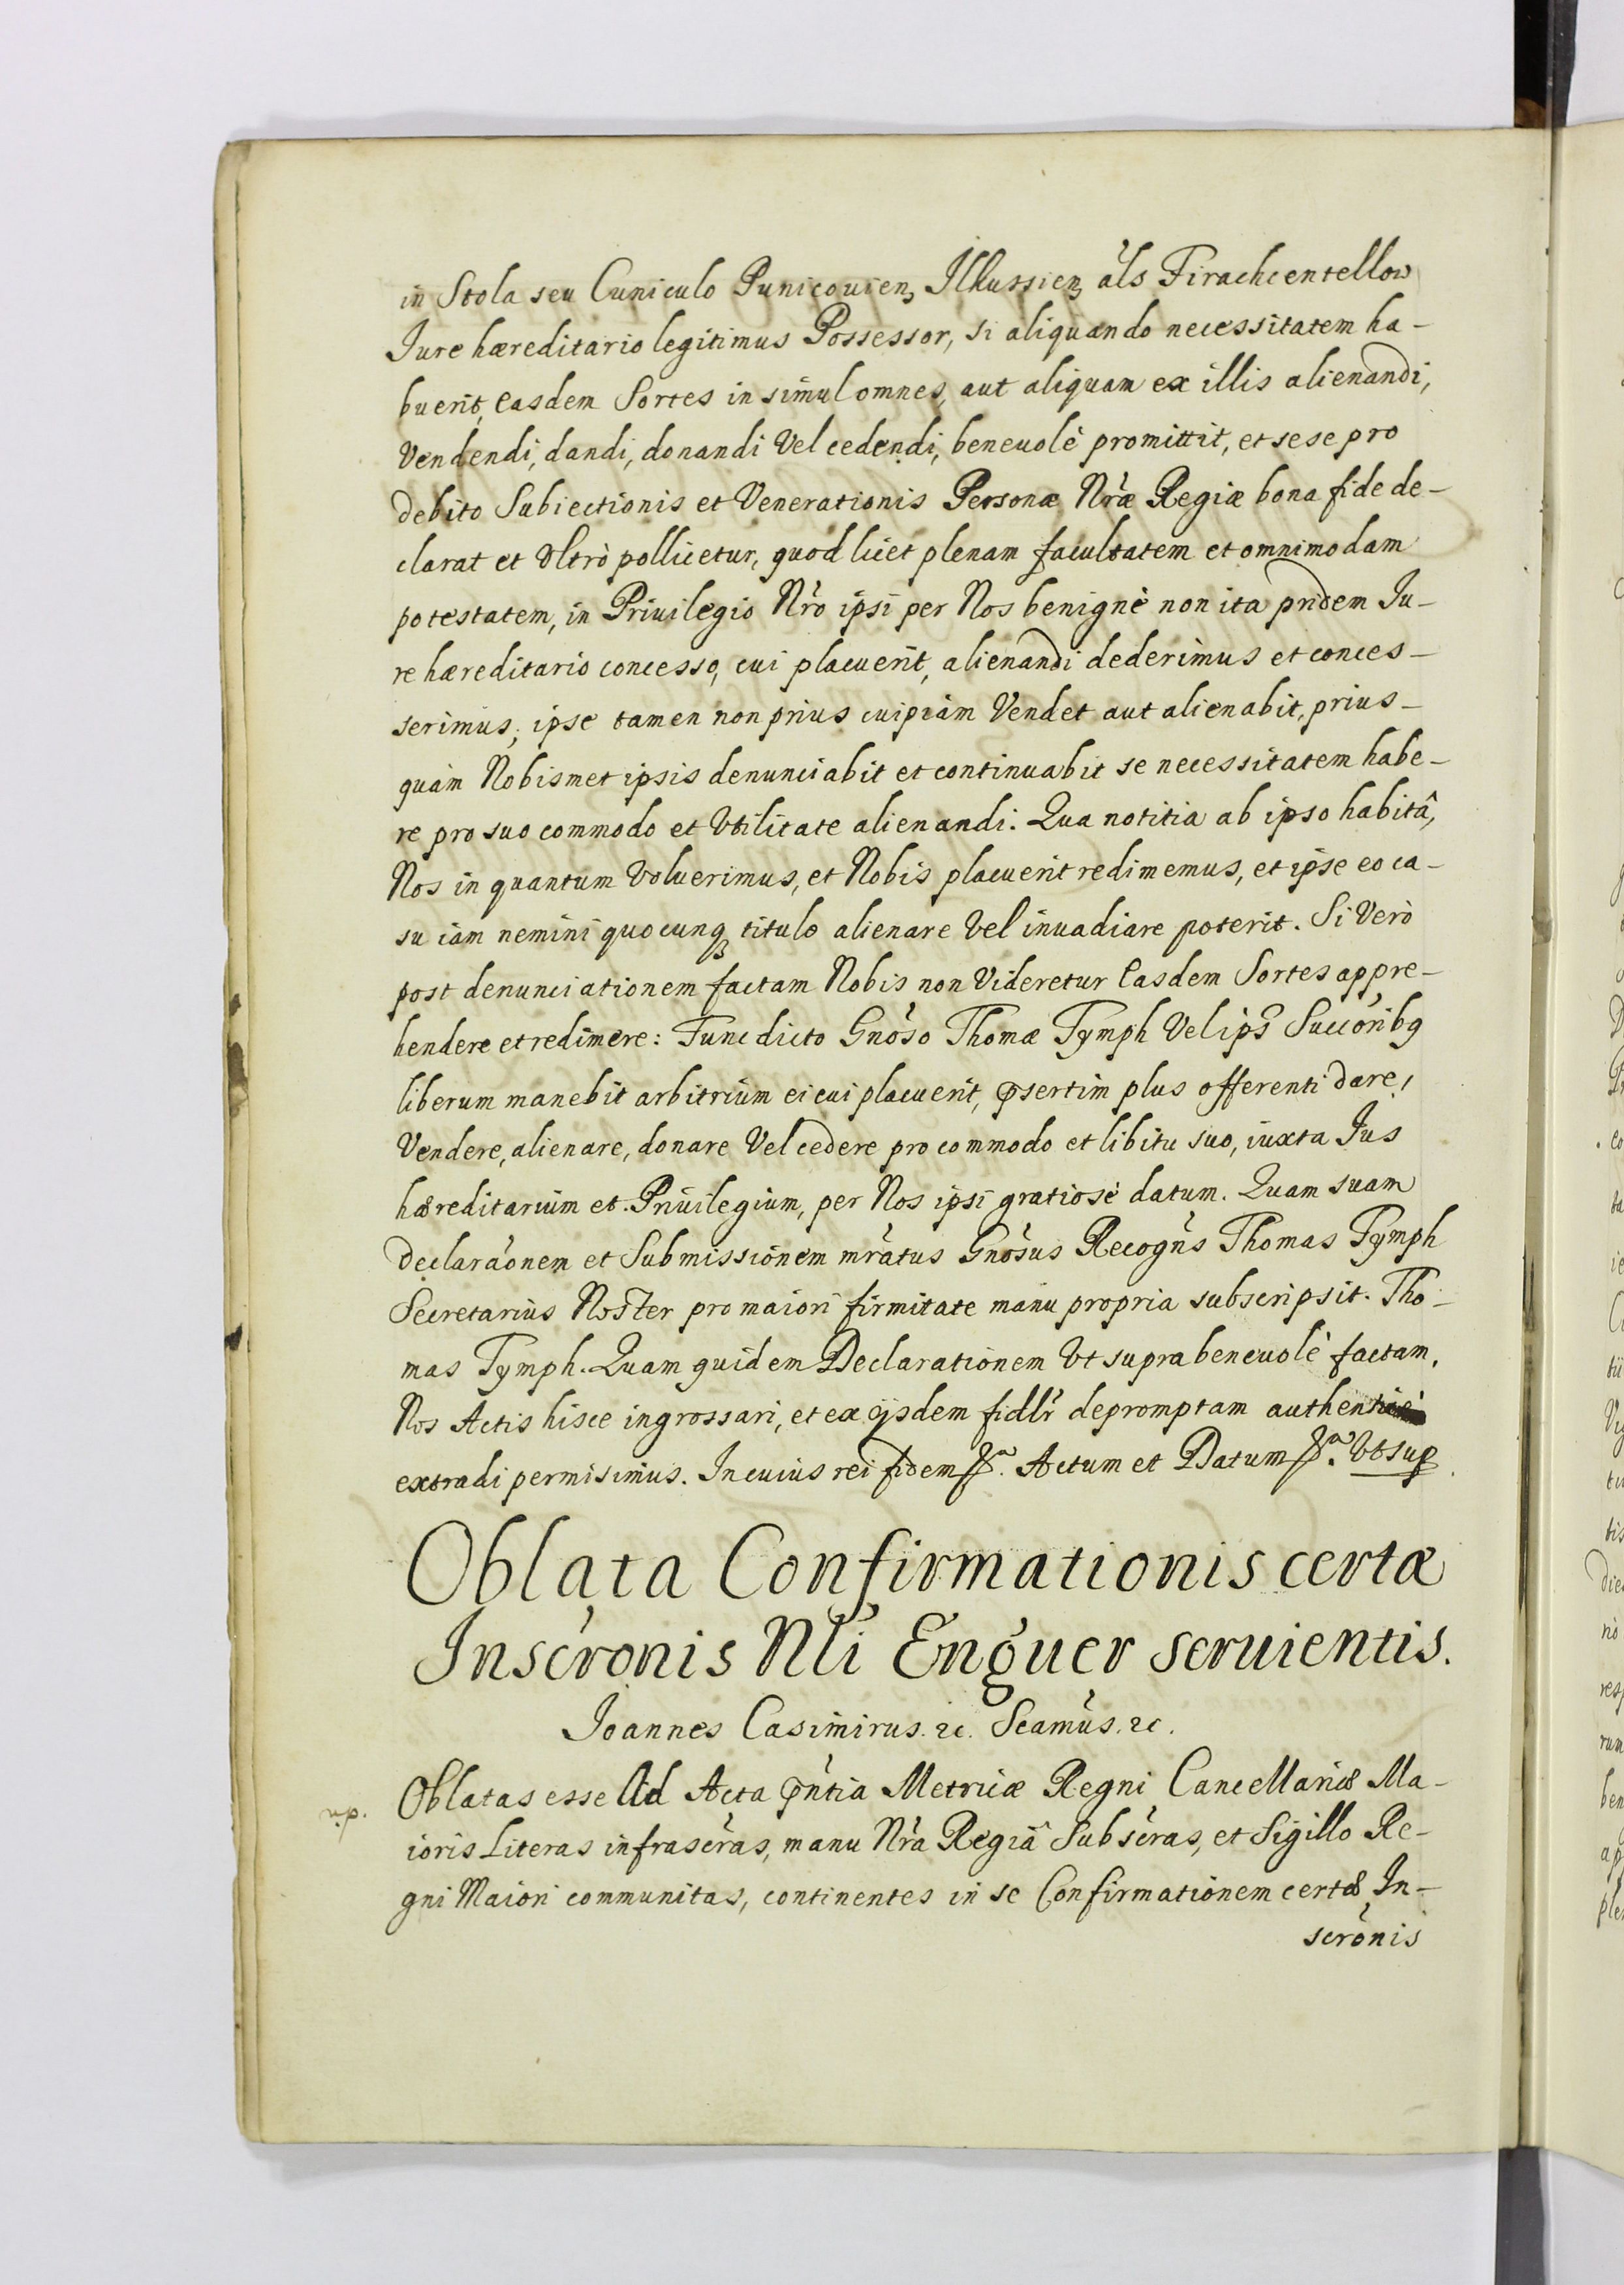 in Stola seu Cuniculo Punicouien, Ilkussien, als Firachcentellow
Jure hæreditario legitimus Possessor, si aliquando necessitatem ha-
buerit, Easdem Sortes in simul omnes, aut aliquam ex illis alienandi,
Vendendi, dandi, donandi Vel cedendi, beneuolè promittit, et sese pro
debito Subiectionis et Venerationis Personæ Nræ Regiæ bona fide de-
clarat et Vltrò pollicetur, quod licet plenam facultatem et omnimodam
potestatem, in Priuilegio Nro ipsi per Nos benignè non ita pridem Ju-
re hæreditario concesso, cui placuerit, alienandi dederimus et conces-
serimus, ipse tamen non prius cuipiam Vendet aut alienabit, prius-
quàm Nobismet ipsis denunciabit et continuabit se necessitatem habe-
re pro suo commodo et Vtilitate alienandi. Qua notitia ab ipso habitâ,
Nos in quantum Voluerimus, et Nobis placuerit redimemus, et ipse eo ca-
su iam nemini quocunq titulo alienare Vel inuadiare poterit. Si Verò
post denunciationem factam Nobis non Videretur Easdem Sortes appre-
hendere et redimere: Tunc dicto Gnoso Thomæ Tymph Vel ips Succoribq
liberum manebit arbitrium ei cui placuerit, psertim plus offerenti dare,
Vendere, alienare, donare Vel cedere pro commodo et libitu suo, iuxta Jus
hæreditarium et Priuilegium, per Nos ipsi gratiosè datum. Quam suam
declaraonem et Submissionem mratus Gnosus Recogns Thomas Tymph
Secretarius Noster pro maiori firmitate manu propria subscripsit. Tho-
mas Tymph. Quam quidem Declarationem Vt supra beneuolè factam,
Nos Actis hisce ingrossari, et ex ijsdem fidlr depromptam authenticè
extradi permisimus. In cuius rei fidem Actum et Datum Vt sup
Oblata Confirmationis certæ
Inscronis Nli Enguer seruientis.
Joannes Casimirus. &c. Scamus. &c.
n.p.
Oblatas esse Ad Acta pntia Metricæ Regni Cancellariæ Ma-
ioris Literas infrascras, manu Nra Regiâ Subscras, et Sigillo Re-
gni Maiori communitas, continentes in se Confirmationem certæ In-
scronis